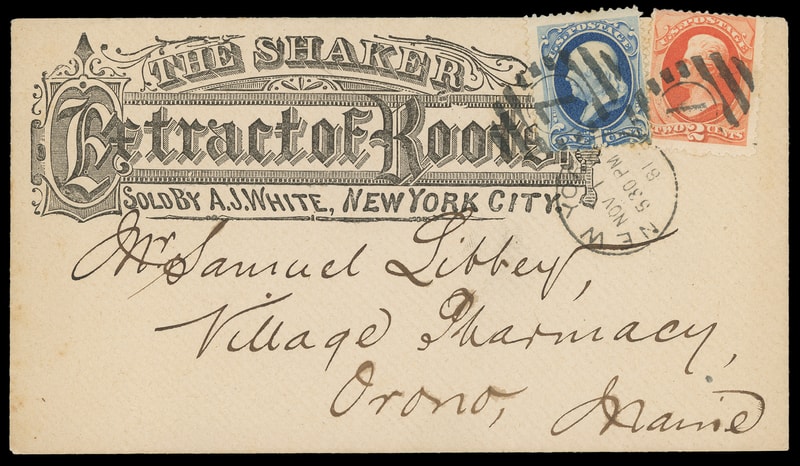 THE SHAKER
Extract of Roots.
SOLD BY A.J. WHITE, NEW YORK CITY.
U.S. POSTAGE
ONE CENT
U.S. POSTAGE
TWO 2 CENTS
NEW YO
NOV 1
530 PM
81
Mr Samuel Libbey,
Village Pharmacy,
Orono, Maine